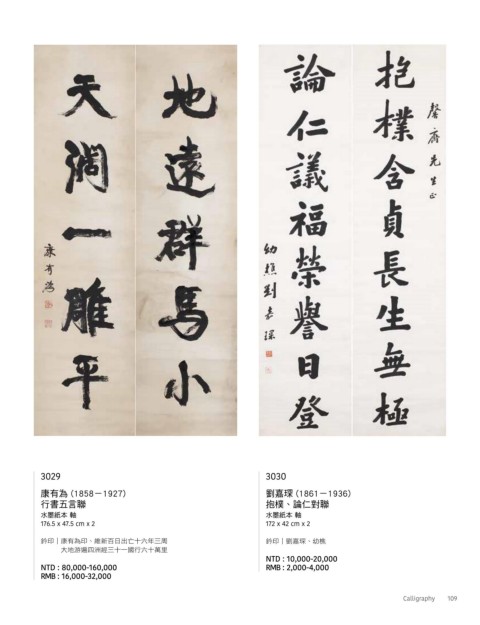 地遠群馬小
天澗一雕平
康有為
馨齋先生正
抱樸含貞長生無極
論仁議福榮譽日登
幼樵劉嘉琛
3029
康有為 (1858－1927)
行書五言聯
水墨紙本 軸
176.5 x 47.5 cm x 2
鈐印｜康有為印、維新百日出亡十六年三周
大地游遍四洲經三十一國行六十萬里
NTD : 80,000-160,000
RMB : 16,000-32,000
3030
劉嘉琛 (1861－1936)
抱樸、論仁對聯
水墨紙本 軸
172 x 42 cm x 2
鈐印｜劉嘉琛、幼樵
NTD : 10,000-20,000
RMB : 2,000-4,000
Calligraphy 109